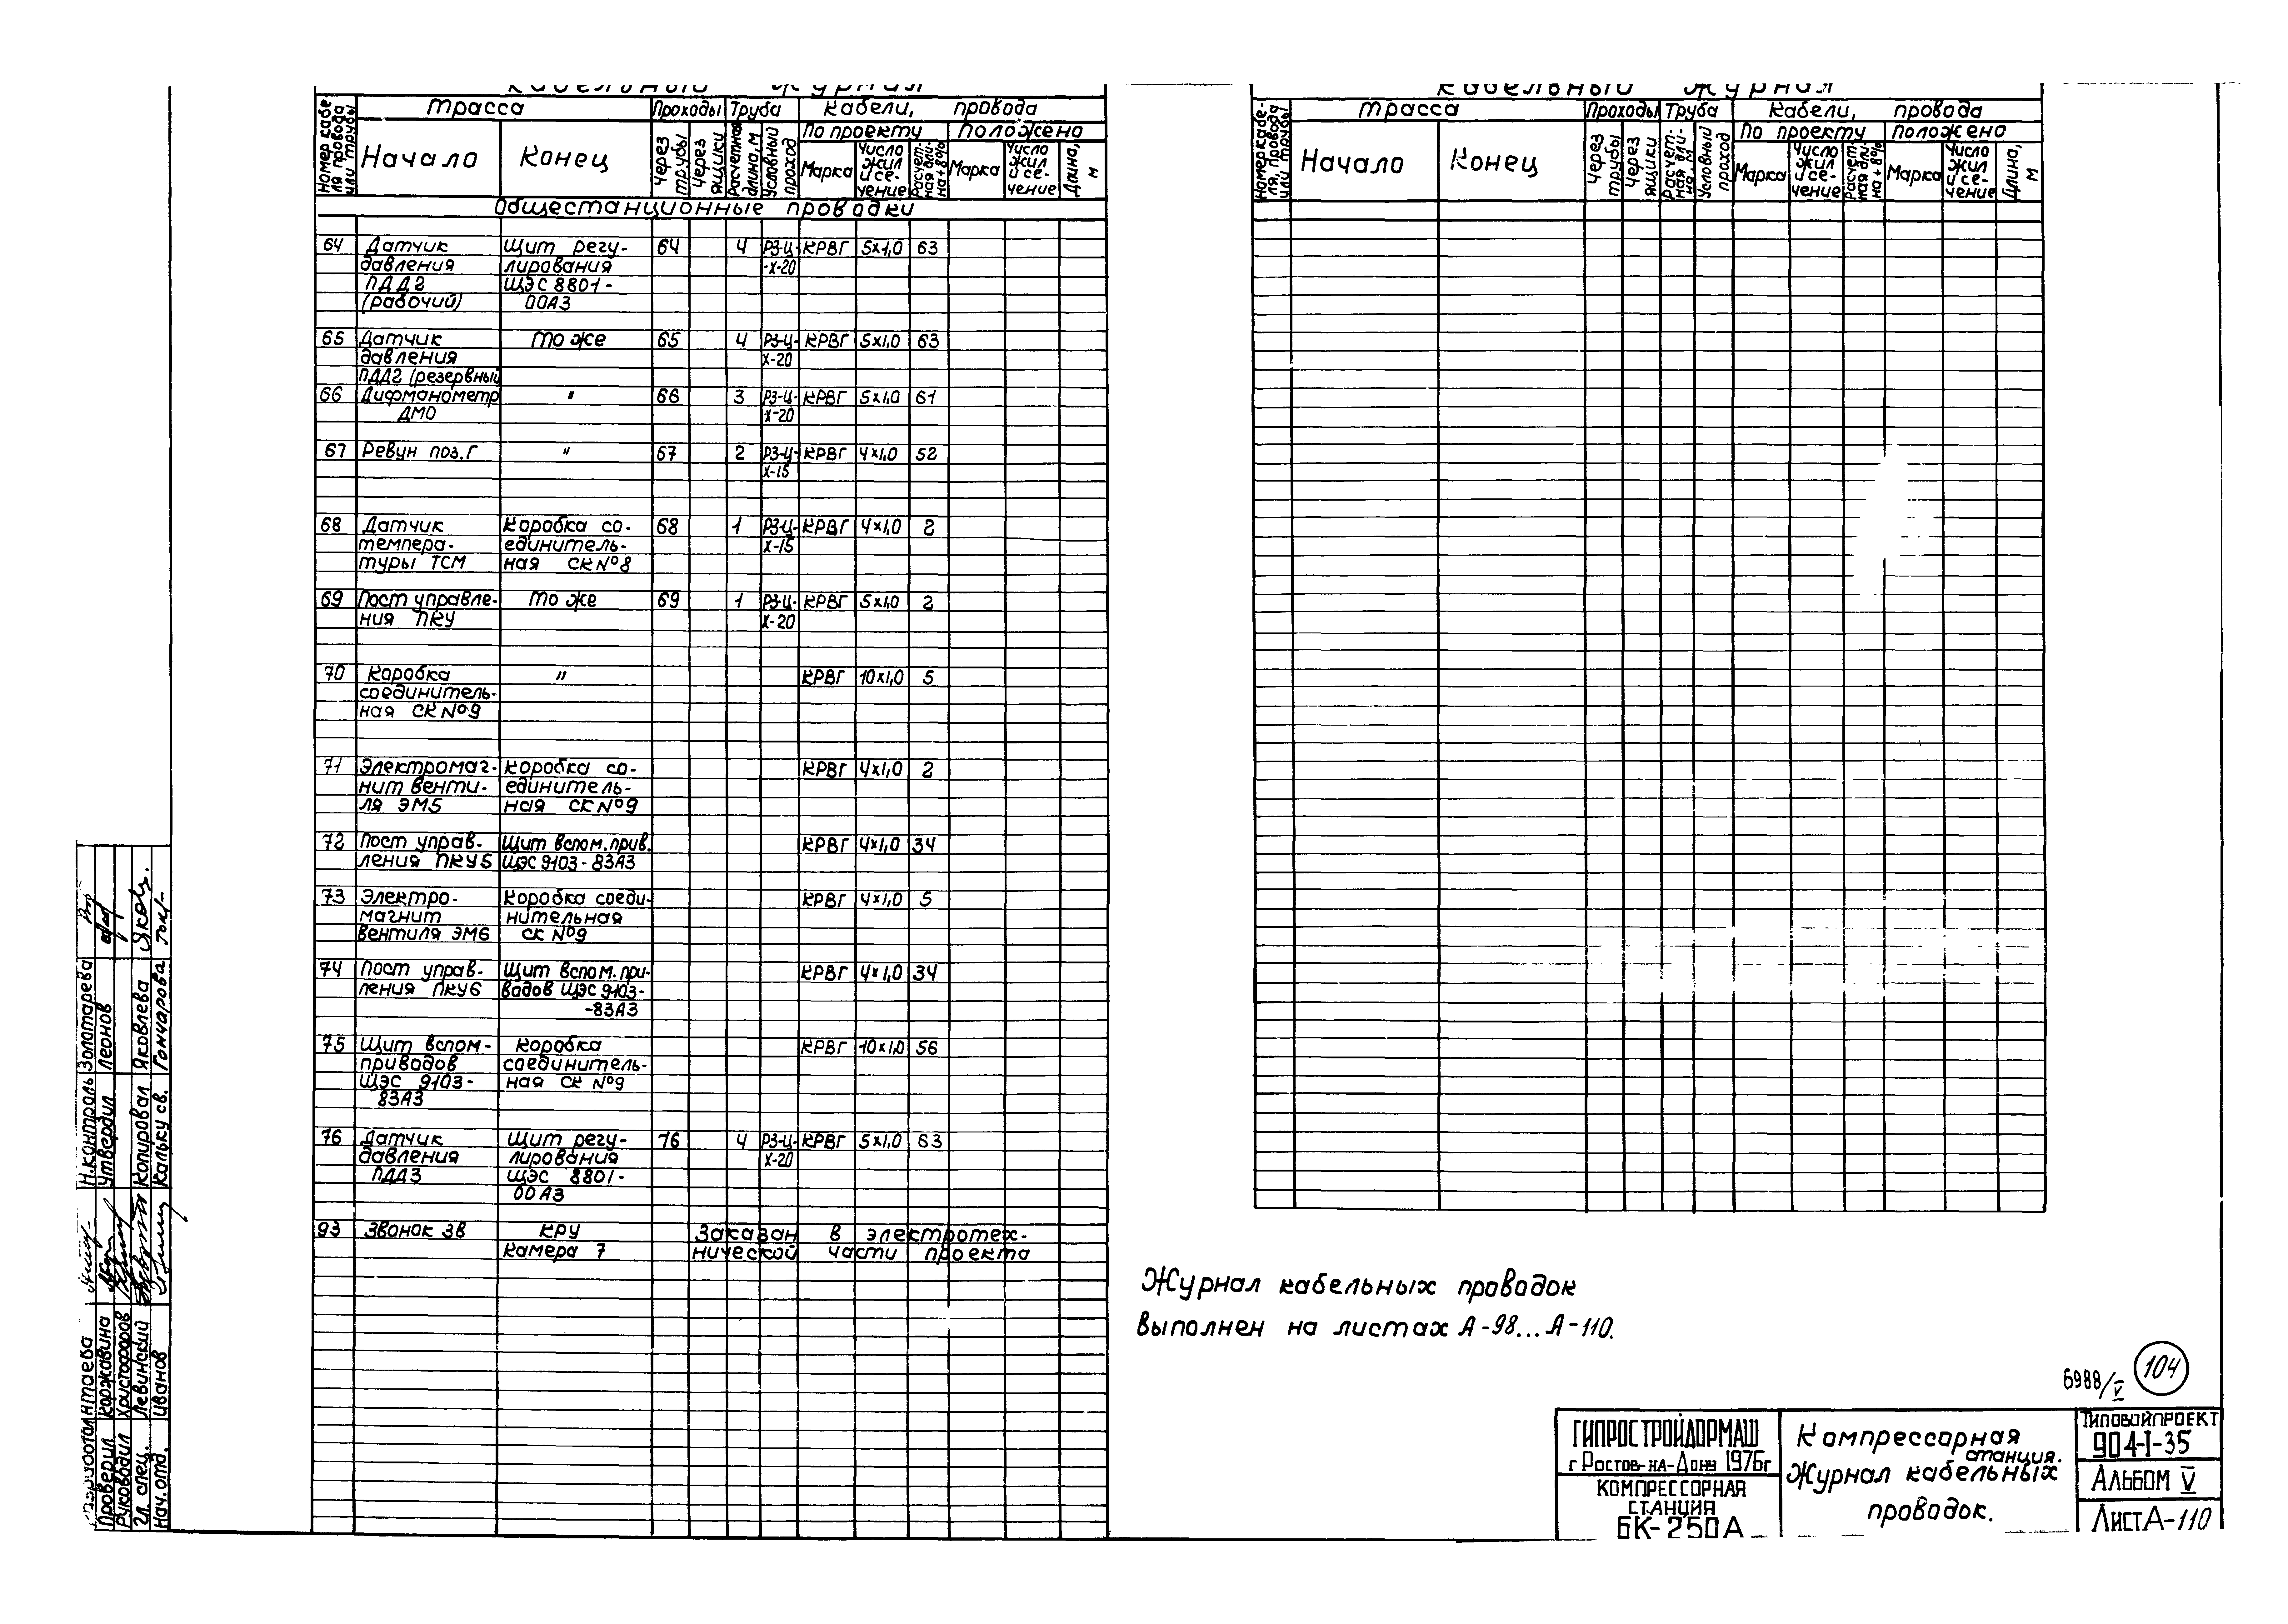 Кабельный журнал
Номер кабеля, провода или трубы
Трасса
Проходы
Труба
Кабели, провода
По проекту
Положено
Начало
Конец
Через трубы
Через ящики
Расчетная длина, м
Условный проход
Марка
Число жил и сечение
Расчетная длина + 8%
Марка
Число жил и сечение
Длина, м
Общестанционные проводки
64 Датчик Щит регу- 64 4 РЗ-Ц- КРВГ 5х1,0 63
давления лирования -Х-20
ПДД2 ЩЭС 8801-
(рабочий) 00А3
65 Датчик То же 65 4 РЗ-Ц- КРВГ 5х1,0 63
давления Х-20
ПДД2 (резервный
66 Дифманометр " 66 3 РЗ-Ц- КРВГ 5х1,0 61
ДМО Х-20
67 Ревун поз.Г " 67 2 РЗ-Ц- КРВГ 4х1,0 52
Х-15
68 Датчик Коробка со- 68 1 РЗ-Ц- КРВГ 4х1,0 2
темпера- единитель- Х-15
туры ТСМ ная СК №8
69 Пост управле- То же 69 1 РЗ-Ц- КРВГ 5х1,0 2
ния ПКУ Х-20
70 Коробка " КРВГ 10х1,0 5
соединитель-
ная СК №9
71 Электромаг- Коробка со- КРВГ 4х1,0 2
нит венти- единитель-
ля ЭМ5 ная СК №9
72 Пост управ- Щит вспом.прив. КРВГ 4х1,0 34
ления ПКУ5 ЩЭС 9103-83А3
73 Электро- Коробка соеди- КРВГ 4х1,0 5
магнит нительная
вентиля ЭМ6 СК №9
74 Пост управ- Щит вспом.при- КРВГ 4х1,0 34
ления ПКУ6 водов ЩЭС 9103-
-83А3
75 Щит вспом- Коробка КРВГ 10х1,0 56
приводов соединитель-
ЩЭС 9103- ная СК №9
83А3
76 Датчик Щит регу- 76 4 РЗ-Ц- КРВГ 5х1,0 63
давления лирования Х-20
ПДД3 ЩЭС 8801-
00А3
93 Звонок ЗВ КРУ Заказан в электротех-
Камера 7 нической части проекта
Кабельный журнал
Номер кабе-ля, провода или трубы
Трасса
Проходы
Труба
Кабели, провода
По проекту
Положено
Начало
Конец
Через трубы
Через ящики
Расчет-ная дли-на, м
Условный проход
Марка
Число жил и се-чение
Расчет-ная дли-на + 8%
Марка
Число жил и се-чение
Длина, м
Журнал кабельных проводок
выполнен на листах А-98...А-110.
6988/V
104
ГИПРОСТРОЙДОРМАШ
г Ростов-на-Дону 1976г
КОМПРЕССОРНАЯ
СТАНЦИЯ
6К-250А
Компрессорная
станция.
Журнал кабельных
проводок.
Типовой проект
904-1-35
Альбом V
Лист А-110
Н.контроль Золотарева
Утвердил Леонов
Копировал Яковлева
Кальку св. Гончарова
Проверил Коржавина
Руководил Христофоров
Гл. спец. Левинский
Нач.отд. Иванов